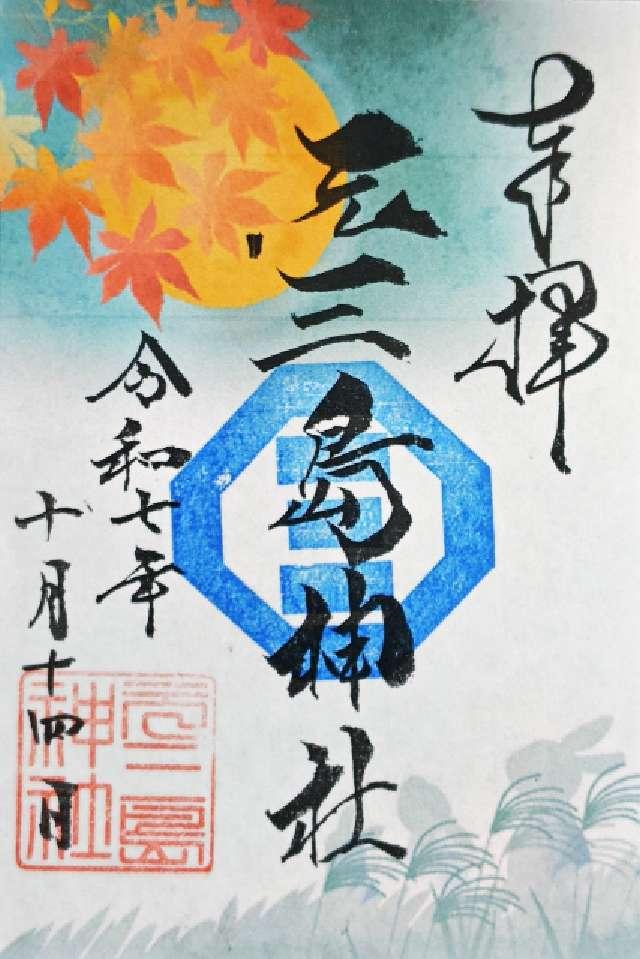 奉拝
元三島神社
令和七年
十月十四日
元三島
神社